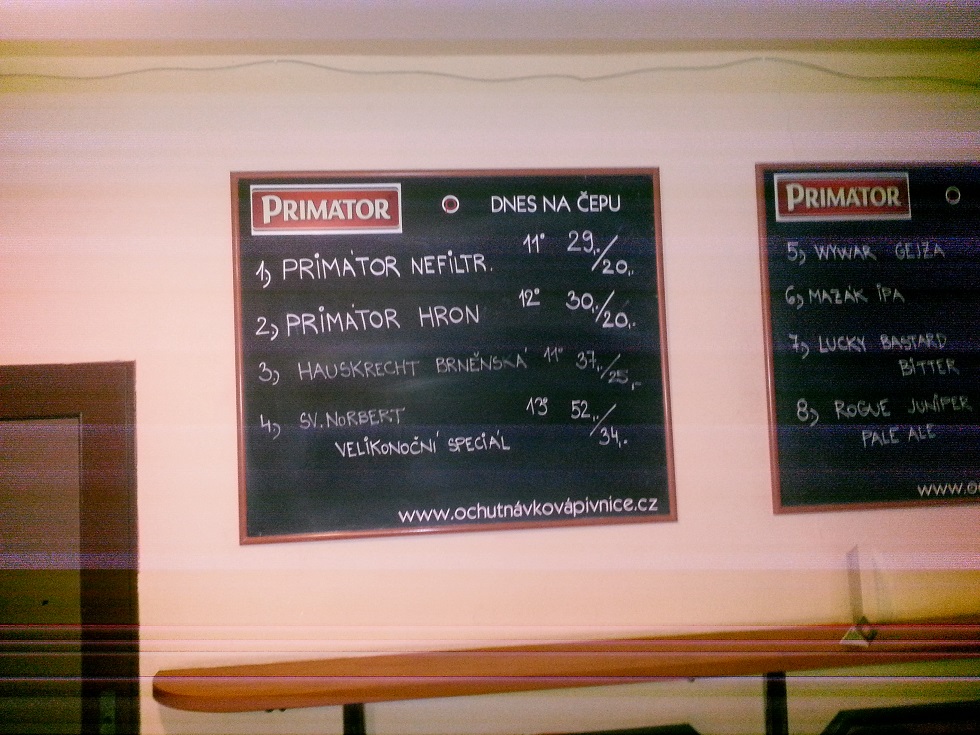 PRIMÁTOR
DNES NA ČEPU
1) PRIMÁTOR NEFILTR. 11° 29,-/20,-
2) PRIMÁTOR HRON 12° 30,-/20,-
3) HAUSKRECHT BRNĚNSKÁ 11° 37,-/25,-
4) SV. NORBERT 13° 52,-/34,-
VELIKONOČNÍ SPECIÁL
www.ochutnávkovápivnice.cz
PRIMÁTOR
5) WYWAR GEJZA
6) MAZÁK IPA
7) LUCKY BASTARD
BITTER
8) ROGUE JUNIPER
PALE ALE